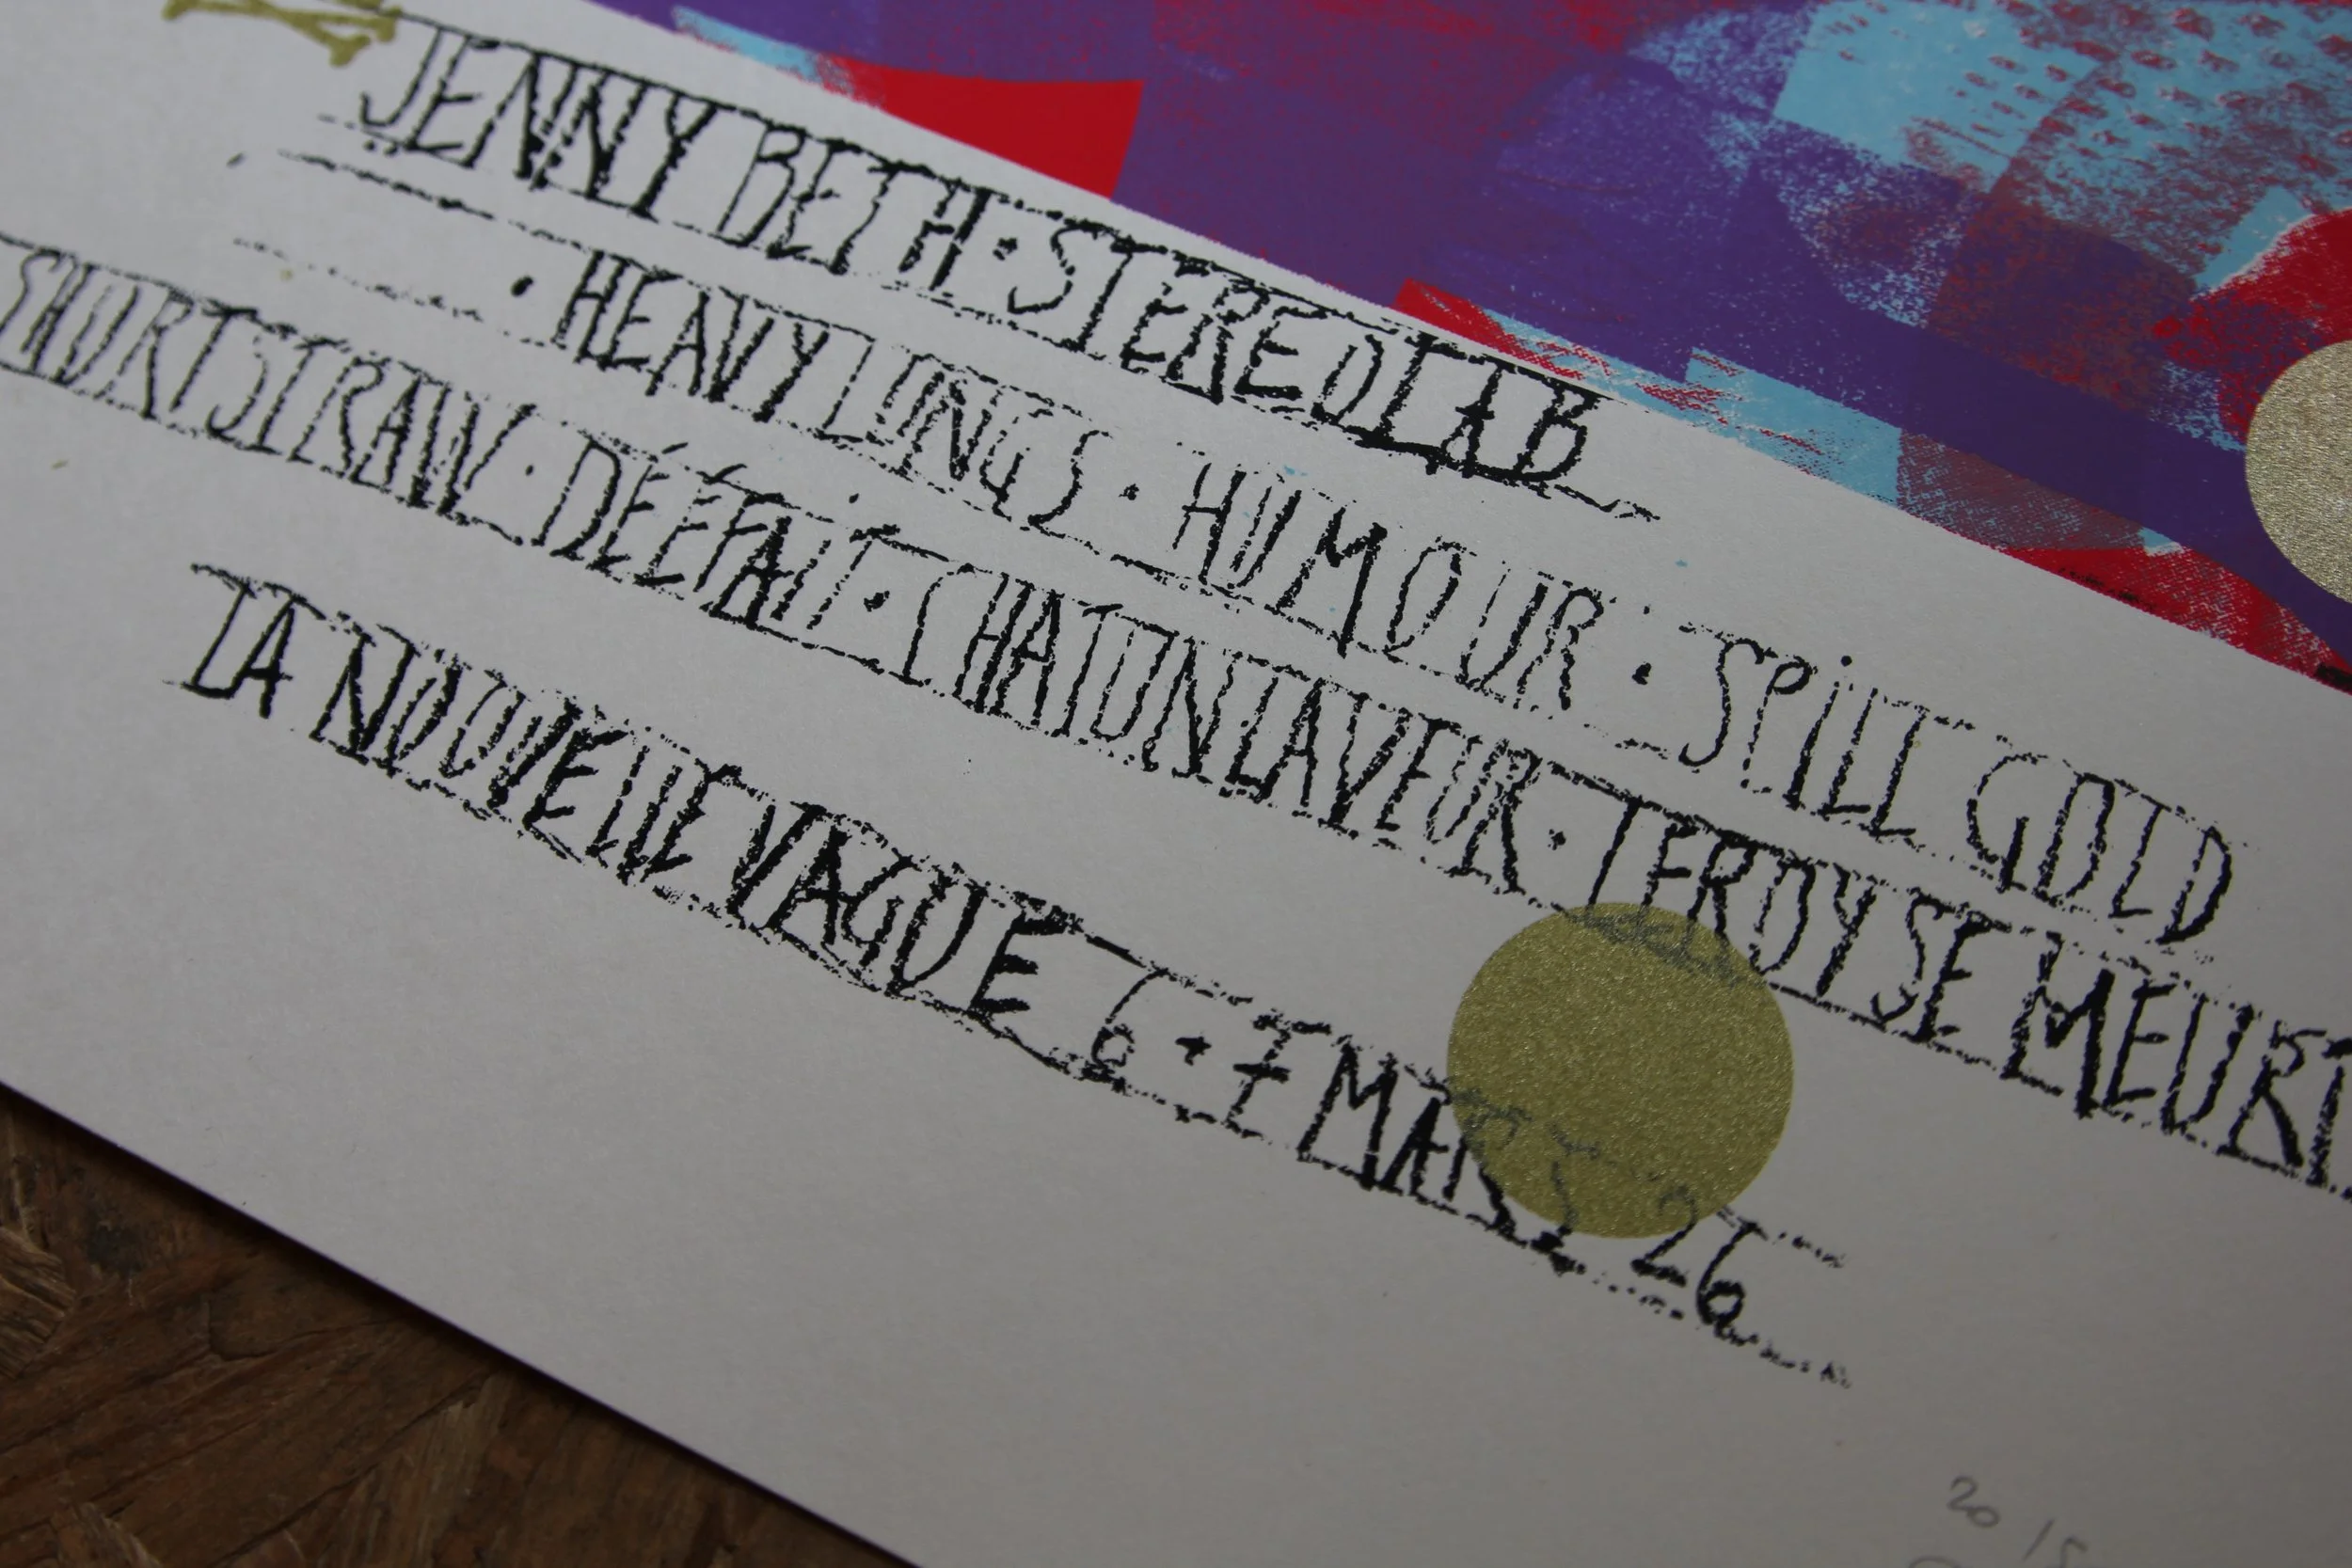 JENNY BETH · STEREOLAB
· HEAVY LUNGS · HUMOUR · SPiLL GOLD
SHORTSTRAW · DÉÉFAiT · CHATON LAVEUR · LEROY SE MEURT
LA NOUVELLE VAGUE 6 · 7 MARS '26
20 / 5